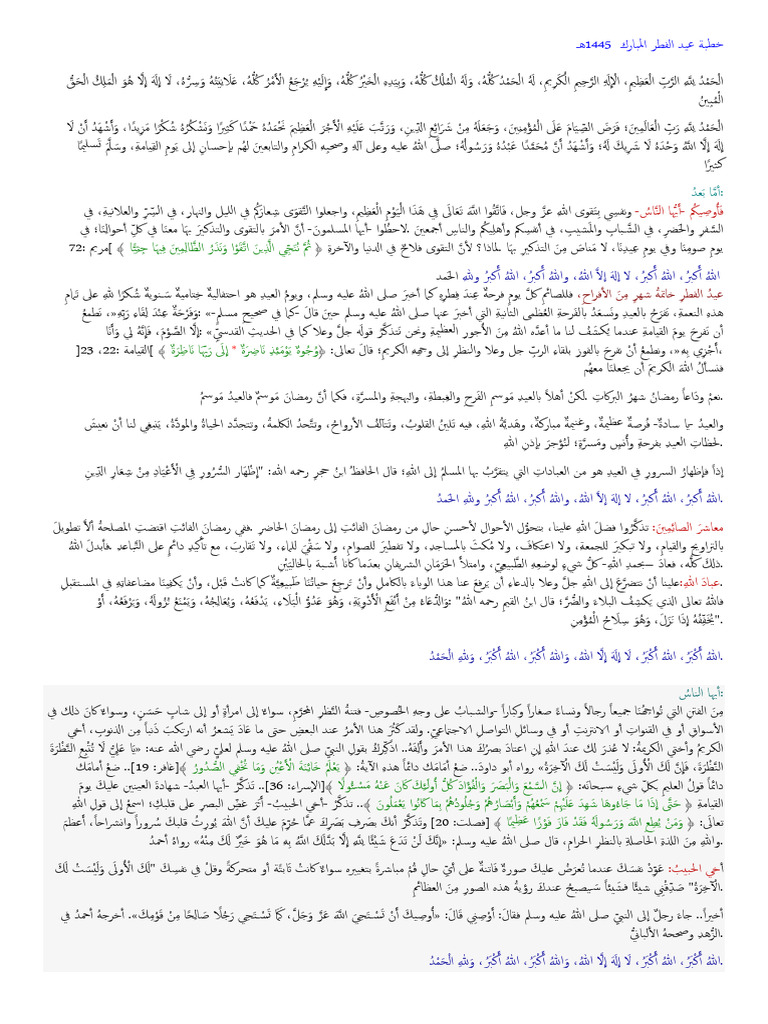 خطبة عيد الفطر المبارك 1445هـ
الْحَمْدُ لِلَّهِ الرَّبِّ الْعَظِيمِ، الْإِلَهِ الرَّحِيمِ الْكَرِيمِ، لَهُ الْحَمْدُ كُلُّهُ، وَلَهُ الْمُلْكُ كُلُّهُ، وَبِيَدِهِ الْخَيْرُ كُلُّهُ، وَإِلَيْهِ يُرْجَعُ الْأَمْرُ كُلُّهُ، عَلَانِيَتُهُ وَسِرُّهُ، لَا إِلَهَ إِلَّا هُوَ الْمَلِكُ الْحَقُّ
الْمُبِينُ
الْحَمْدُ لِلَّهِ رَبِّ الْعَالَمِينَ؛ فَرَضَ الصِّيَامَ عَلَى الْمُؤْمِنِينَ، وَجَعَلَهُ مِنْ شَرَائِعِ الدِّينِ، وَرَتَّبَ عَلَيْهِ الْأَجْرَ الْعَظِيمَ نَحْمَدُهُ حَمْدًا كَثِيرًا وَنَشْكُرُهُ شُكْرًا مَزِيدًا، وَأَشْهَدُ أَنْ لَا
إِلَهَ إِلَّا اللَّهُ وَحْدَهُ لَا شَرِيكَ لَهُ؛ وَأَشْهَدُ أَنَّ مُحَمَّدًا عَبْدُهُ وَرَسُولُهُ؛ صلَّى اللهُ عليه وعلى آلِهِ وصحبِه الكرامِ والتابعينَ لهُم بإحسانٍ إلى يومِ القيامةِ، وسَلَّمَ تَسليمًا
كثيرًا
أمَّا بَعدُ:
فَأُوصِيكُمْ -أَيُّهَا النَّاسُ- ونفسِي بِتَقوى اللهِ عزَّ وجل، فَاتَّقُوا اللَّهَ تَعَالَى فِي هَذَا الْيَوْمِ الْعَظِيمِ، واجعلوا التَّقوَى شِعارَكُم في الليلِ والنهارِ، في السِّرِّ والعلانيةِ، في
السَّفرِ والحَضرِ، في الشَّبابِ والمَشيبِ، في أَنفسِكُم وأهلِيكُم والناسِ أجمعينَ .لاحظُوا -أيها المسلمون- أنَّ الأمرَ بالتقوى والتذكيرَ بها معنَا في كلِّ أحوالِنَا؛ في
يومِ صومِنَا وفي يومِ عِيدِنَا، لا مَناصَ مِنَ التذكيرِ بهَا .لماذا؟ لأنَّ التقوى فلاحٌ في الدنيا والآخرةِ ﴿ ثُمَّ نُنَجِّي الَّذِينَ اتَّقَوْا وَنَذَرُ الظَّالِمِينَ فِيهَا جِثِيًّا ﴾ ]مريم :72
اللهُ أكبرُ، اللهُ أكبرُ، لا إلهَ إلاَّ اللهُ، واللهُ أكبرُ، اللهُ أكبرُ وللهِ الحَمد
عيدُ الفطرِ خاتمةُ شهرٍ مِنَ الأفراحِ، فللصائمِ كلَّ يومٍ فرحةٌ عِندَ فِطرِهِ كما أخبرَ صلى الله عليه وسلم، ويومُ العيدِ هو احتفاليةٌ خِتاميةٌ سَنويةٌ شُكرًا للهِ على تَمامِ
هذه النعمةِ، نَفرَحُ بالعيدِ ونَسعَدُ بالفَرحةِ العُظمَى الثانيةِ التي أخبرَ عنها صلى الله عليه وسلم حينَ قالَ كما في صحيحِ مسلمٍ-» :وَفَرْحَةٌ عِنْدَ لِقَاءِ رَبِّهِ«، نَطمعُ
أن نَفرحَ يومَ القيامةِ عندما يكشفُ لنا ما أعدَّه اللهُ مِنَ الأجورِ العظيمةِ ونحن نَتذكَّرُ قولَه جلَّ وعلا كما في الحديثِ القدسيِّ» :إِلَّا الصَّوْمَ، فَإِنَّهُ لِي وَأَنَا
أَجْزِي بِهِ«، ونطمعُ أنْ نفرحَ بالفوزِ بلقاءِ الربِّ جل وعلا والنظرِ إلى وجهِه الكريمِ؛ قالَ تعالى: ﴿وُجُوهٌ يَوْمَئِذٍ نَاضِرَةٌ * إِلَى رَبِّهَا نَاظِرَةٌ ﴾ ]القيامة :22، 23[،
فنسألُ اللهَ الكريمَ أن يجعلَنا معهُم
نعمْ ودَاعاً رمضانُ شهرُ البركاتِ .لكنْ أهلاً بالعيدِ مَوسمِ الفَرحِ والغِبطةِ، والبَهجةِ والمسرَّةِ، فكما أنَّ رمضانَ مَوسمٌ فالعيدُ مَوسمٌ.
والعيدُ -يا سادةٌ- فُرصةٌ عظيمةٌ، وغنيمةٌ مباركةٌ، وهَديَّةُ اللهِ، فيه تَلِينُ القلوبُ، وتتآلفُ الأرواحُ، وتتَّحدُ الكلمةُ، وتتجدَّد الحياةُ والمودَّةُ، يَنبغي لنا أنْ نعيشَ
لحظاتِ العيدِ بفرحةٍ وأُنسٍ ومَسرَّةٍ؛ لنُؤجرَ بإذنِ اللهِ.
إذاً فإظهارُ السرورِ في العيدِ هو من العباداتِ التي يتقرَّبُ بها المسلمُ إلى اللهِ؛ قال الحافظُ ابنُ حجرٍ رحمه الله: "إِظْهَار السُّرُورِ فِي الْأَعْيَادِ مِنْ شِعَارِ الدِّينِ
اللهُ أَكبرُ، اللهُ أَكبرُ، لا إلهَ إلاَّ اللهُ، واللهُ أَكبرُ، اللهُ أَكبرُ وللهِ الحَمدُ.
معاشرَ الصائِمِينَ: تذكَّرُوا فضلَ اللهِ علينا، بتحوُّلِ الأحوالِ لأحسنِ حالٍ من رمضانَ الفائتِ إلى رمضانَ الحاضرِ .ففي رمضانَ الفائتِ اقتضتِ المصلحةُ ألاَّ تطويلَ
بالتراويحِ والقيامِ، ولا تبكيرَ للجمعةِ، ولا اعتكافَ، ولا مُكثَ بالمساجدِ، ولا تفطيرَ للصوامِ، ولا سَقْيَ للماءِ، ولا تقاربَ، مع تأكيدٍ دائمٍ على التَّباعدِ .فأبدلَ اللهُ
ذلكَ كلَّه، فعادَ –بحمدِ اللهِ-كلُّ شيءٍ لوضعِهِ الطَّبيعيِّ، وامتلأَ الحَرمَانِ الشريفانِ بعدَما كانَا أشبهَ بالخاليَيْنِ.
عبادَ اللهِ:علينا أنْ نتضرَّعَ إلى اللهِ جلَّ وعلا بالدعاءِ أن يَرفعَ عنا هذا الوباءَ بالكاملِ وأنْ تَرجِعَ حياتُنَا طبيعيَّةً كما كانتْ قَبْل، وأنْ يَكفِينَا مضاعفاتِه في المستقبلِ
فاللهُ تعالى الذي يَكشِفُ البلاءَ والضُّرَّ؛ قال ابنُ القيمِ رحمه الله" :وَالدُّعَاءُ مِنْ أَنْفَعِ الْأَدْوِيَةِ، وَهُوَ عَدُوُّ الْبَلَاءِ، يَدْفَعُهُ، وَيُعَالِجُهُ، وَيَمْنَعُ نُزُولَهُ، وَيَرْفَعُهُ، أَوْ
يُخَفِّفُهُ إِذَا نَزَلَ، وَهُوَ سِلَاحُ الْمُؤْمِنِ".
اللهُ أَكْبَرُ، اللهُ أَكْبَرُ، لَا إِلَهَ إِلَّا اللهُ، وَاللهُ أَكْبَرُ، اللهُ أَكْبَرُ، وَلِلهِ الْحَمْدُ.
أيها الناسُ:
مِنَ الفتنِ التي تُواجِهُنَا جميعاً رجالاً ونساءً صغاراً وكباراً -والشبابُ على وجهِ الخُصوصِ- فتنةُ النَّظرِ المحرَّمِ، سواءً إلى امرأةٍ أو إلى شابٍ حَسَنٍ، وسواءً كانَ ذلك في
الأسواقِ أو في القنواتِ أو الانترنت أو في وسائلِ التواصلِ الاجتماعيِّ. ولقد كثُرَ هذا الأمرُ عند البعضِ حتى ما عَادَ يَشعرُ أنه ارتكبَ ذَنباً مِن الذنوبِ، أخي
الكريمُ وأختي الكريمةُ: لا عُذرَ لك عندَ اللهِ إن اعتادَ بصرُكَ هذا الأمرَ وألِفَهُ.. اذكِّرُكَ بقولِ النبيِّ صلى اللهُ عليه وسلم لعليٍّ رضي الله عنه: «يَا عَلِيُّ لَا تُتْبِعِ النَّظْرَةَ
النَّظْرَةَ، فَإِنَّ لَكَ الْأُولَى وَلَيْسَتْ لَكَ الْآخِرَةُ» رواه أبو داودَ.. ضعْ أمامَك دائمًا هذهِ الآيةَ: ﴿ يَعْلَمُ خَائِنَةَ الْأَعْيُنِ وَمَا تُخْفِي الصُّدُورُ ﴾[غافر: 19].. ضعْ أمامَكَ
دائماً قولُ العليمِ بكلِّ شيءٍ سبحانَه: ﴿ إِنَّ السَّمْعَ وَالْبَصَرَ وَالْفُؤَادَ كُلُّ أُولَئِكَ كَانَ عَنْهُ مَسْئُولًا ﴾[الإسراء: 36].. تذكَّرْ -أيها العبدُ- شهادةَ العينينِ عليكَ يومَ
القيامةِ ﴿ حَتَّى إِذَا مَا جَاءُوهَا شَهِدَ عَلَيْهِمْ سَمْعُهُمْ وَأَبْصَارُهُمْ وَجُلُودُهُمْ بِمَا كَانُوا يَعْمَلُونَ ﴾.. تذكَّرْ -أخي الحبيبُ- أثرَ غضِّ البصرِ على قلبِكَ؛ اسمعْ إلى قولِ اللهِ
تعالَى: ﴿ وَمَنْ يُطِعِ اللَّهَ وَرَسُولَهُ فَقَدْ فَازَ فَوْزًا عَظِيمًا ﴾ [فصلت: 20] وتذكَّرْ أنكَ بصَرفِ بَصَرِكَ عمَّا حُرِّمَ عليكَ أنَّ اللهَ يُورِثُ قلبَكَ سُروراً وانشراحاً، أعظمَ
واللهِ مِنَ اللذةِ الحاصلةِ بالنظرِ الحرامِ، قال صلى الله عليه وسلم: «إِنَّكَ لَنْ تَدَعَ شَيْئًا لِلَّهِ إِلَّا بَدَّلَكَ اللَّهُ بِهِ مَا هُوَ خَيْرٌ لَكَ مِنْهُ» رواهُ أحمدُ.
أخي الحبيبُ: عَوِّدْ نفسَكَ عندما تُعرَضُ عليكَ صورةٌ فَاتنةٌ على أيِّ حالٍ قُمْ مباشرةً بتغييرِه سواءً كانتْ ثابتةً أو متحركةً وقلْ في نفسِكَ "لَكَ الْأُولَى وَلَيْسَتْ لَكَ
الْآخِرَةُ" صَدِّقْنِي شيئًا فَشيئاً سَيصبحُ عندكَ رؤيةُ هذه الصورِ مِنَ العظائمِ.
أخيراً.. جاءَ رجلٌ إلى النبيِّ صلى الله عليه وسلم فقالَ: أَوْصِنِي قَالَ: «أُوصِيكَ أَنْ تَسْتَحِيَ اللَّهَ عَزَّ وَجَلَّ، كَمَا تَسْتَحِي رَجُلًا صَالِحًا مِنْ قَوْمِكَ». أخرجهُ أحمدُ في
الزُّهدِ وصححهُ الألبانيُّ.
اللهُ أَكْبَرُ، اللهُ أَكْبَرُ، لَا إِلَهَ إِلَّا اللهُ، وَاللهُ أَكْبَرُ، اللهُ أَكْبَرُ، وَلِلهِ الْحَمْدُ.